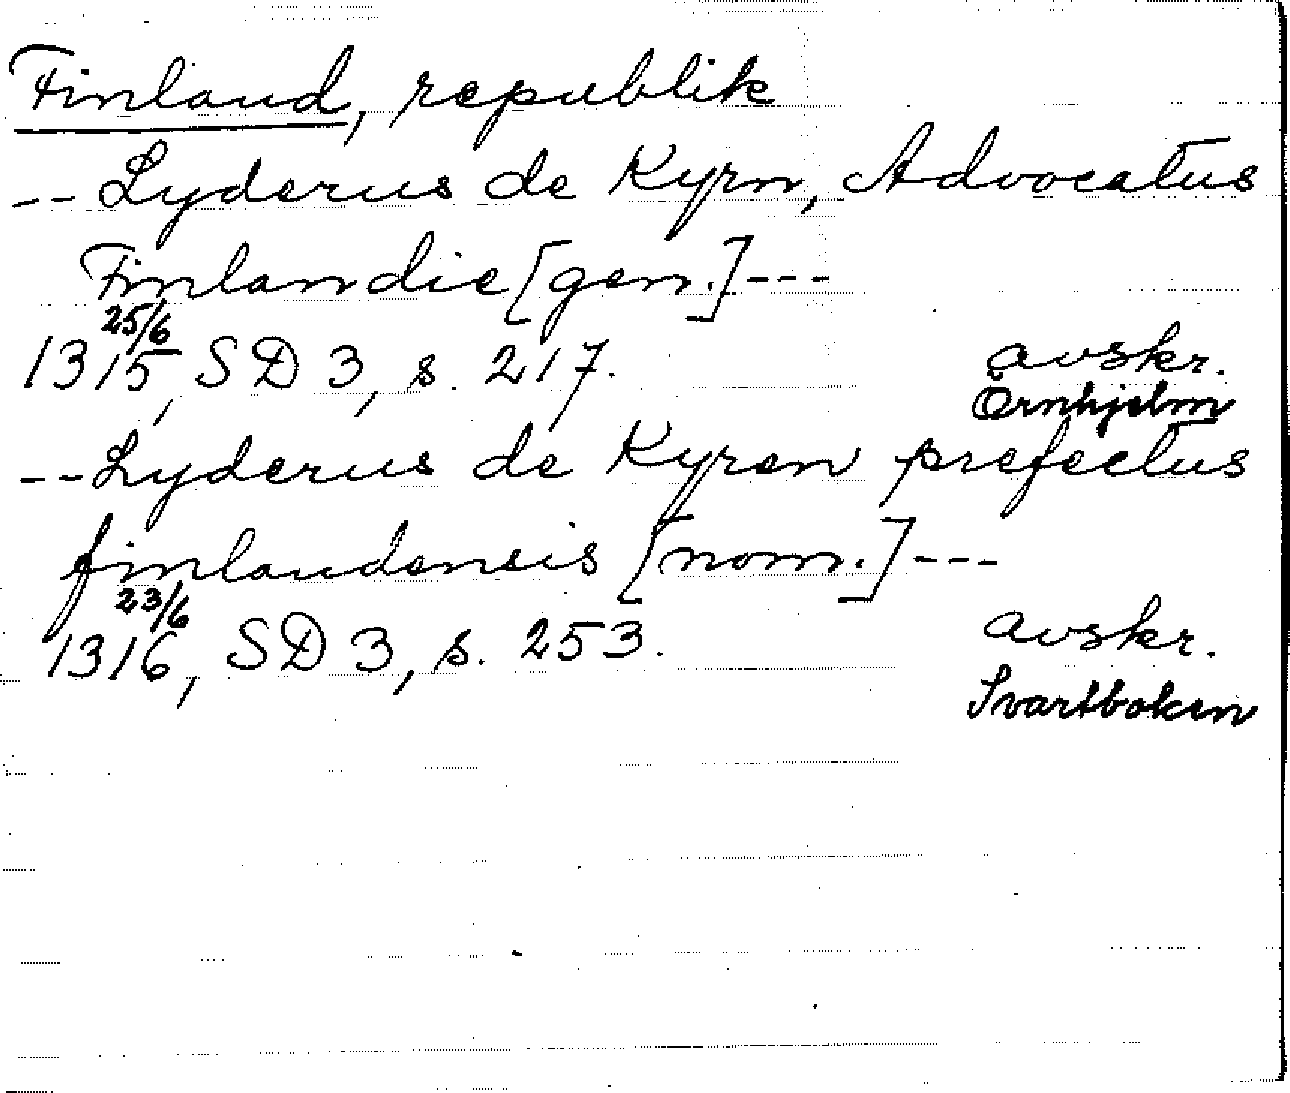 Finland, republik
-- Lyderus de Kyrn, Advocatus
Finlandie [gen.] ---
25/6
1315, SD 3, s. 217. avskr.
Örnhjelm
-- Lyderus de Kyren prefectus
finlandensis [nom.] ---
23/6
1316, SD 3, s. 253. avskr.
Svartboken